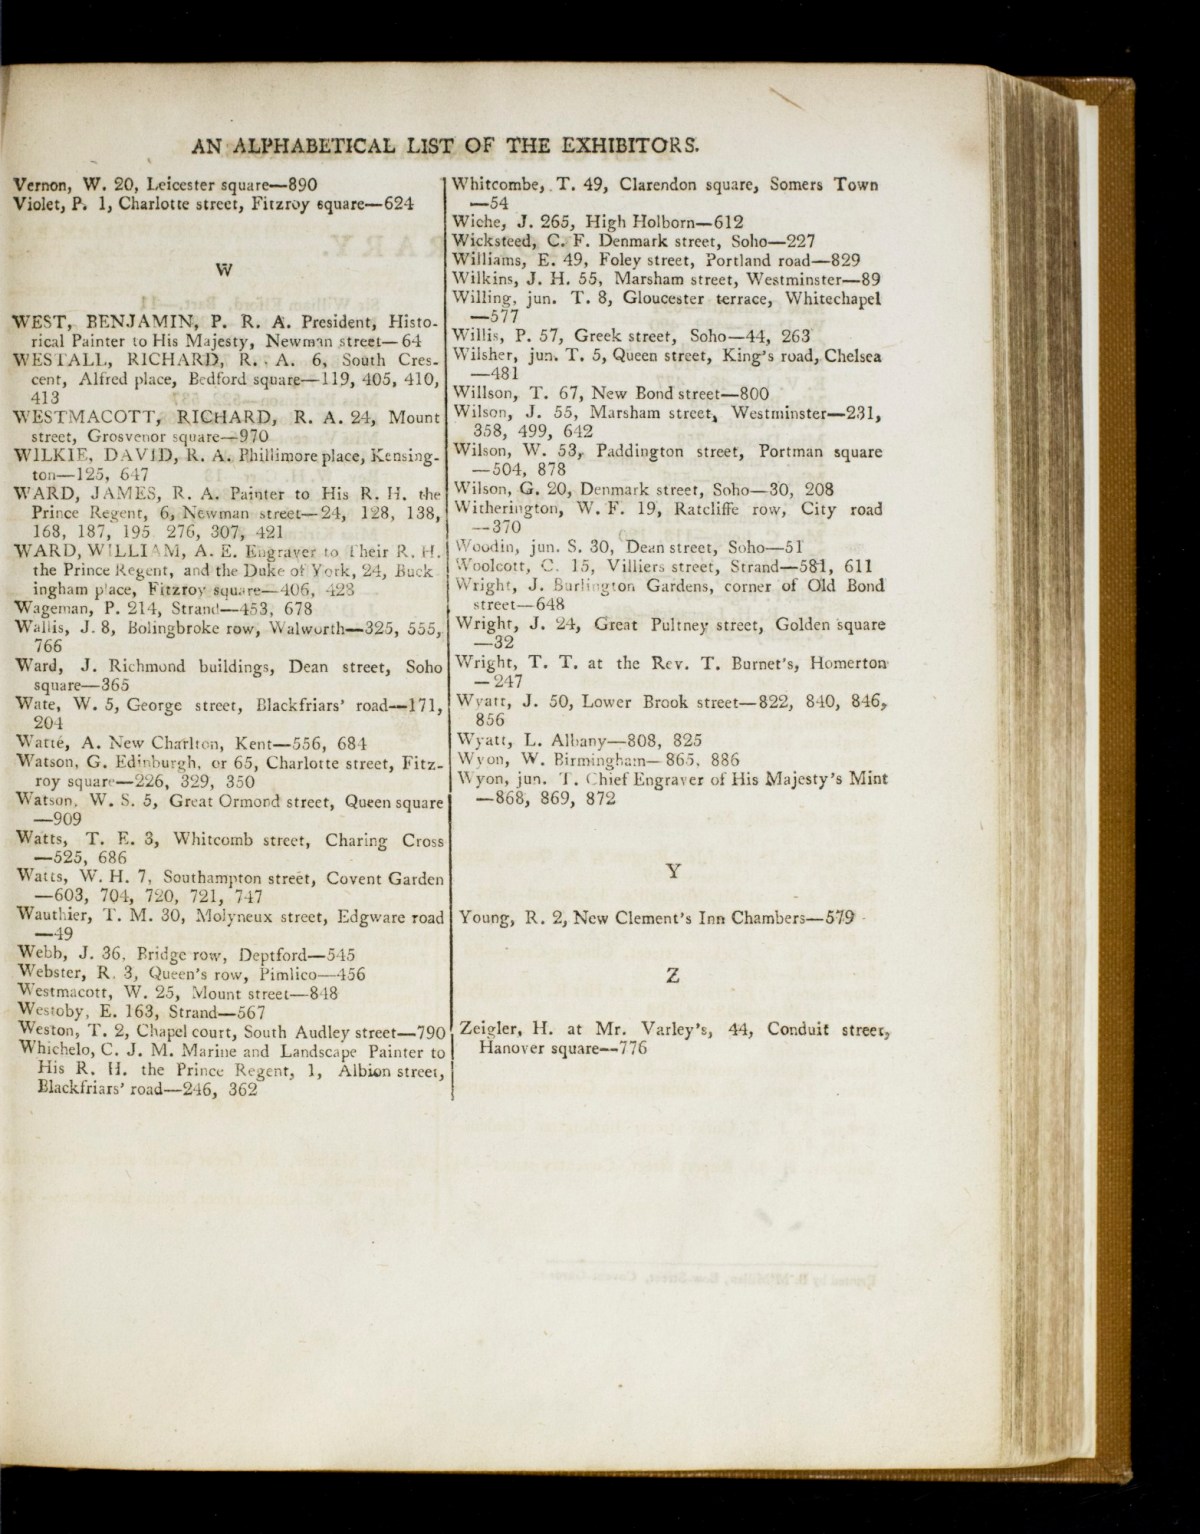 AN ALPHABETICAL LIST OF THE EXHIBITORS.
Vernon, W. 20, Leicester square—890
Violet, P. 1, Charlotte street, Fitzroy square—624
W
WEST, BENJAMIN, P. R. A. President, Histo-
rical Painter to His Majesty, Newman street—64
WESTALL, RICHARD, R. A. 6, South Cres-
cent, Alfred place, Bedford square—119, 405, 410,
413
WESTMACOTT, RICHARD, R. A. 24, Mount
street, Grosvenor square—970
WILKIE, DAVID, R. A. Phillimore place, Kensing-
ton—125, 647
WARD, JAMES, R. A. Painter to His R. H. the
Prince Regent, 6, Newman street—24, 128, 138,
168, 187, 195 276, 307, 421
WARD, WILLIAM, A. E. Engraver to Their R. H.
the Prince Regent, and the Duke of York, 24, Buck
ingham place, Fitzroy square—406, 423
Wageman, P. 214, Strand—453, 678
Wallis, J. 8, Bolingbroke row, Walworth—325, 555,
766
Ward, J. Richmond buildings, Dean street, Soho
square—365
Wate, W. 5, George street, Blackfriars' road—171,
204
Watté, A. New Charlton, Kent—556, 684
Watson, G. Edinburgh, or 65, Charlotte street, Fitz-
roy square—226, 329, 350
Watson, W. S. 5, Great Ormond street, Queen square
—909
Watts, T. E. 3, Whitcomb street, Charing Cross
—525, 686
Watts, W. H. 7, Southampton street, Covent Garden
—603, 704, 720, 721, 747
Wauthier, T. M. 30, Molyneux street, Edgware road
—49
Webb, J. 36, Bridge row, Deptford—545
Webster, R. 3, Queen's row, Pimlico—456
Westmacott, W. 25, Mount street—848
Westoby, E. 163, Strand—567
Weston, T. 2, Chapel court, South Audley street—790
Whichelo, C. J. M. Marine and Landscape Painter to
His R. H. the Prince Regent, 1, Albion street,
Blackfriars' road—246, 362
Whitcombe, T. 49, Clarendon square, Somers Town
—54
Wiche, J. 265, High Holborn—612
Wicksteed, C. F. Denmark street, Soho—227
Williams, E. 49, Foley street, Portland road—829
Wilkins, J. H. 55, Marsham street, Westminster—89
Willing, jun. T. 8, Gloucester terrace, Whitechapel
—577
Willis, P. 57, Greek street, Soho—44, 263
Wilsher, jun. T. 5, Queen street, King's road, Chelsea
—481
Willson, T. 67, New Bond street—800
Wilson, J. 55, Marsham street, Westminster—231,
358, 499, 642
Wilson, W. 53, Paddington street, Portman square
—504, 878
Wilson, G. 20, Denmark street, Soho—30, 208
Witherington, W. F. 19, Ratcliffe row, City road
—370
Woodin, jun. S. 30, Dean street, Soho—51
Woolcott, C. 15, Villiers street, Strand—581, 611
Wright, J. Burlington Gardens, corner of Old Bond
street—648
Wright, J. 24, Great Pultney street, Golden square
—32
Wright, T. T. at the Rev. T. Burnet's, Homerton
—247
Wyatt, J. 50, Lower Brook street—822, 840, 846,
856
Wyatt, L. Albany—808, 825
Wyon, W. Birmingham—865, 886
Wyon, jun. T. Chief Engraver of His Majesty's Mint
—868, 869, 872
Y
Young, R. 2, New Clement's Inn Chambers—579
Z
Zeigler, H. at Mr. Varley's, 44, Conduit street,
Hanover square—776